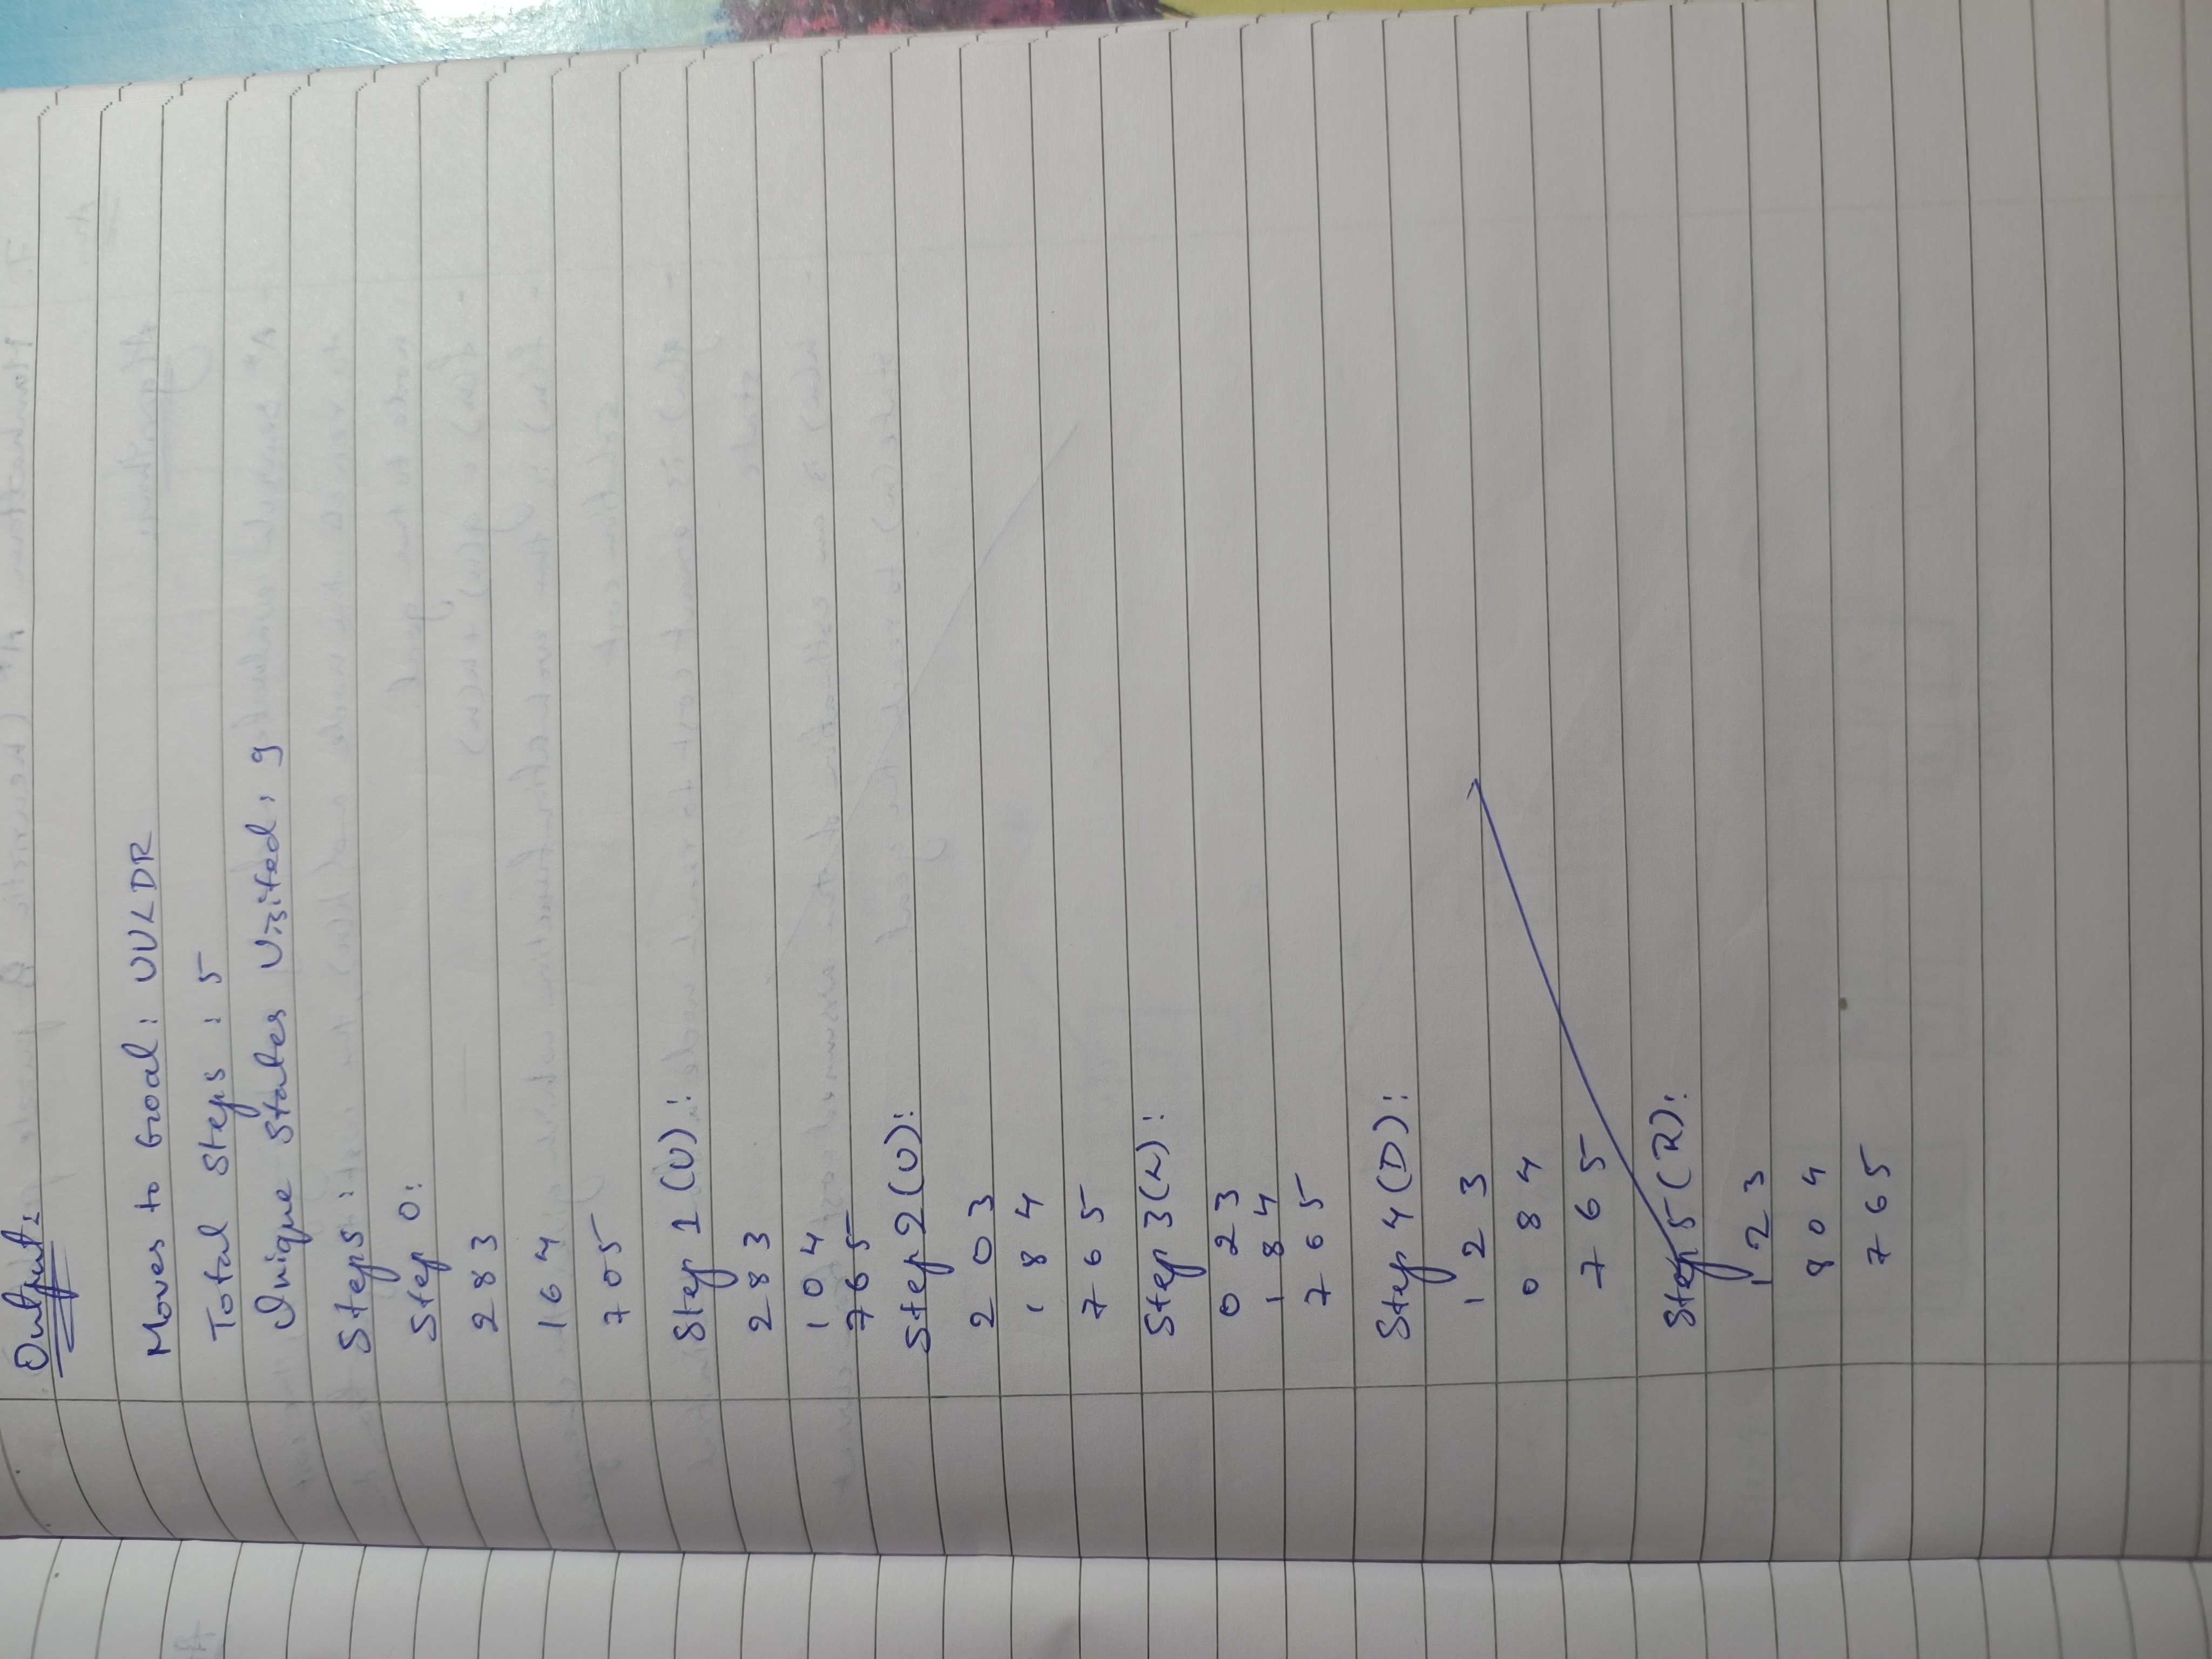 Output:
Moves to Goal: UULDR
Total Steps : 5
Unique States Visited: 9
Steps :
Step 0:
2 8 3
1 6 4
7 0 5
Step 1 (U) :
2 8 3
1 0 4
7 6 5
Step 2 (U):
2 0 3
1 8 4
7 6 5
Step 3 (L) :
0 2 3
1 8 4
7 6 5
Step 4 (D) :
1 2 3
0 8 4
7 6 5
Step 5 (R):
1 2 3
8 0 4
7 6 5